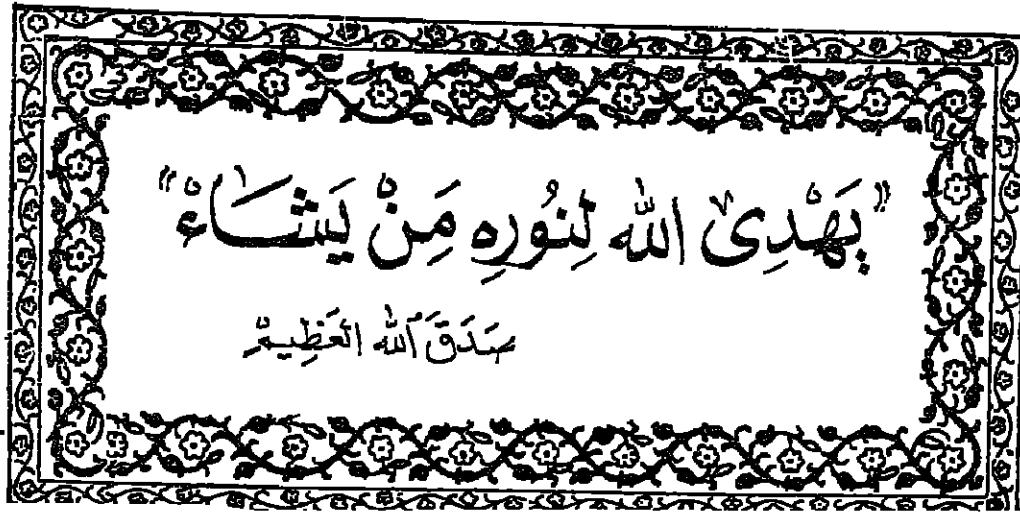 "يَهْدِى اللّٰه لِنُورِهِ مِنْ يَشَاءُ"
صَدَقَ اللّٰه العَظِيم